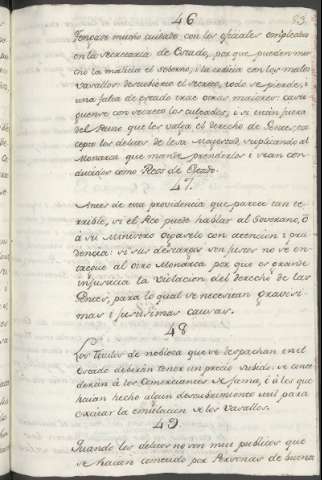 46
53.
Tengase mucho cuidado con los oficiales empleados
en la secretaria de Estado, por que pueden mu
cho la malicia el soborno, i la codicia con los malos
vasallos: descubierto el secreto, todo se pierde, i
una falta de estado trae otras maiores: casti
guense con secreto los culpados, i si están fuera
del Reino que les valga el derecho de Gentes, ex
cepto los delitos de lesa Magestad, suplicando al
Monarca que mande prenderlos i sean con
ducidos como Reos de Estado.
47.
Antes de una providencia que parece tan te
rrible, si el Reo puede hablar al Soverano, ó
á su Ministro oigasele con atencion i pru
dencia: si sus descargas son justos no se en
tregue al otro Monarca por que es grande
injusticia la violacion del derecho de las
Gentes, para lo qual se necesitan gravisi
mas i justisimas causas.
48
Los titulos de nobleza que se despachan en el
Estado deberán tener un precio subido: se conce
derán á los Comerciantes de fama, ó á los que
haian hecho algun descubrimiento util para
excitar la emulacion de los vasallos.
49
Quando los delitos no son mui publicos que
se haian cometido por Personas de buena